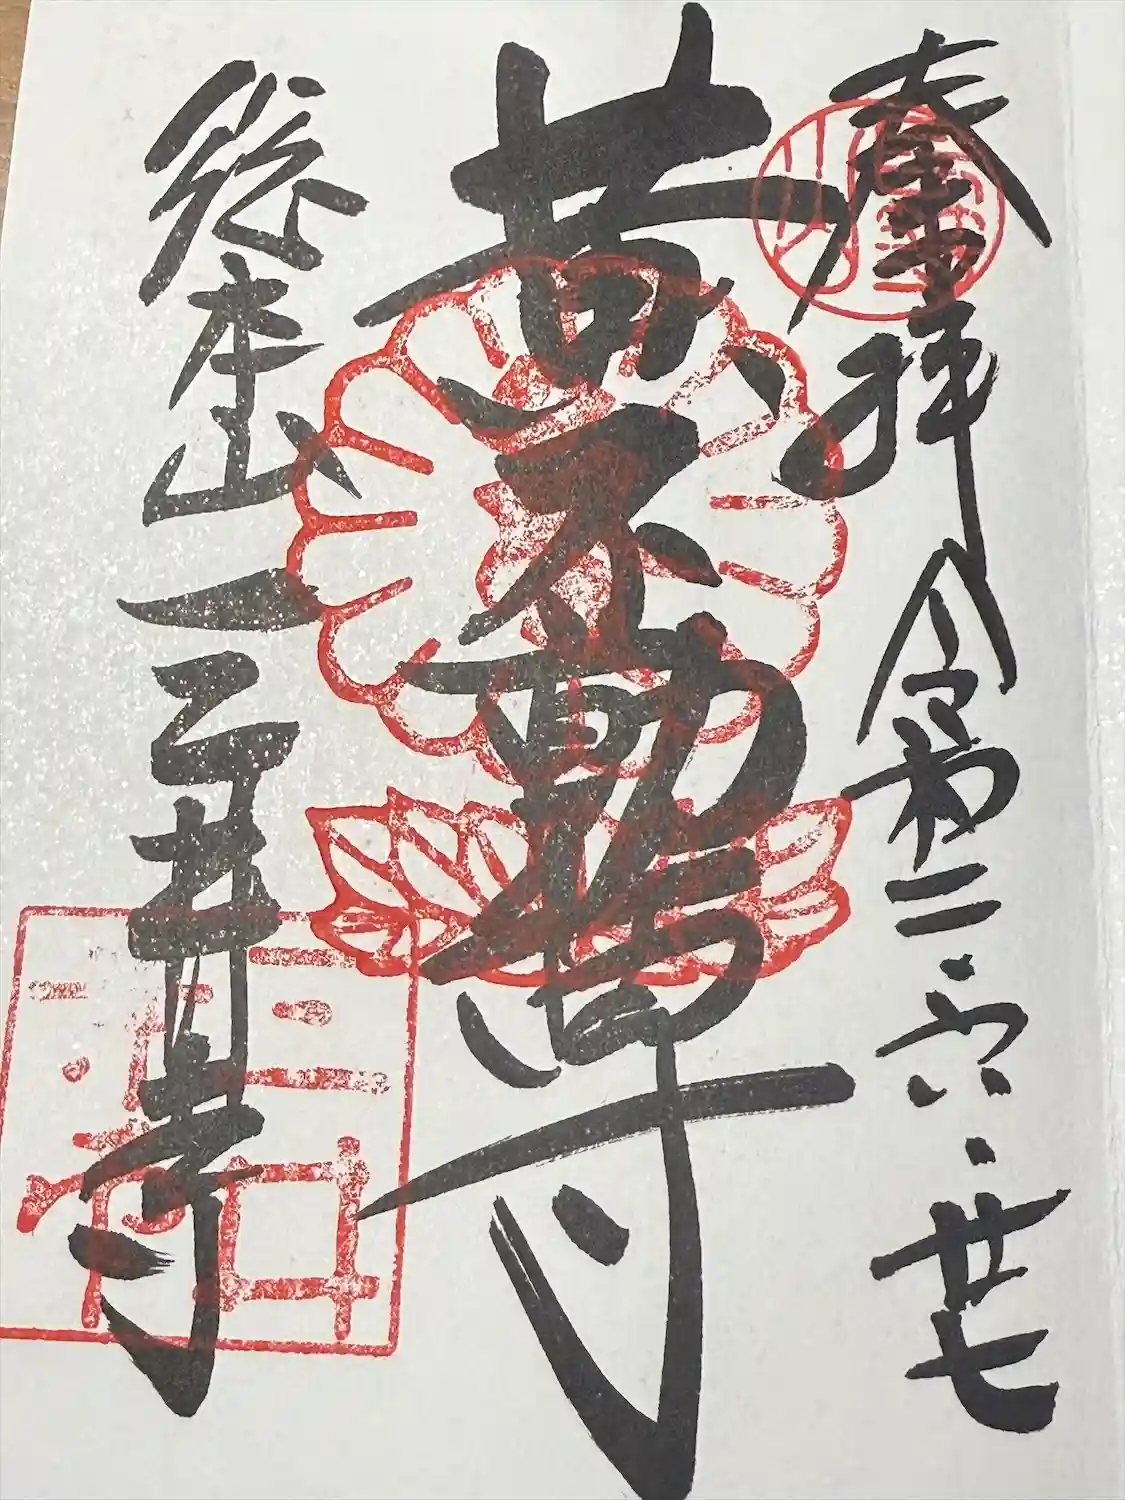 奉拝 令和二・六・廿七
黄不動尊
総本山 三井寺
三井寺印